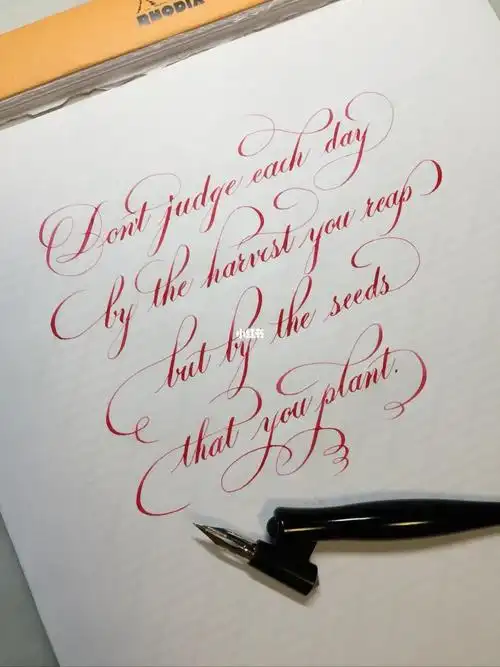 RHODIA
Don't judge each day
by the harvest you reap
but by the seeds
小红书
that you plant.